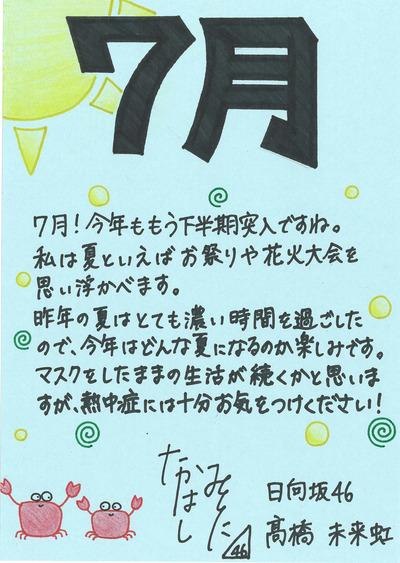 7月
7月！今年ももう下半期突入ですね。
私は夏といえばお祭りや花火大会を
思い浮かべます。
昨年の夏はとても濃い時間を過ごした
ので、今年はどんな夏になるのか楽しみです。
マスクをしたままの生活が続くかと思いま
すが、熱中症には十分お気をつけください！
たかはし
みくに
46
日向坂46
髙橋 未来虹